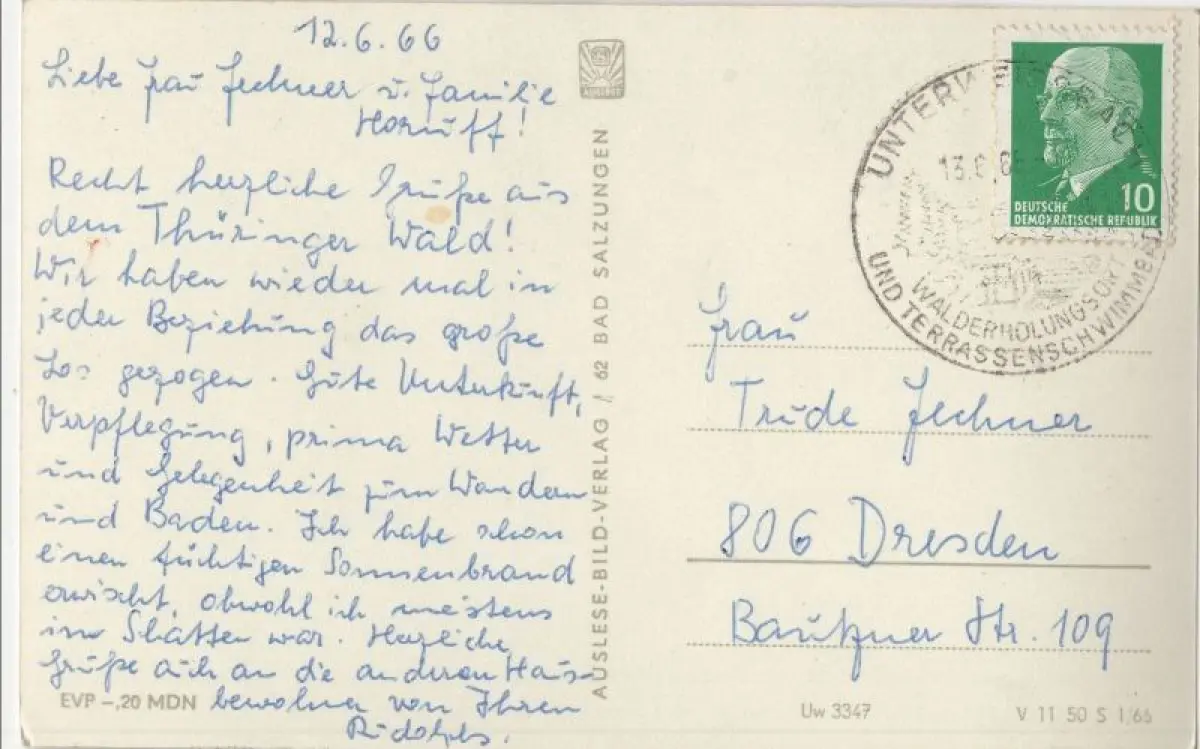 12.6.66
Liebe Frau Zechner u. Familie
Horuff!
Recht herzliche Grüße aus
dem Thüringer Wald!
Wir haben wieder mal in
jeder Beziehung das große
Los gezogen. Gute Unterkunft,
Verpflegung, prima Wetter
und Gelegenheit zum Wandern
und Baden. Ich habe schon
einen tüchtigen Sonnenbrand
erwischt, obwohl ich meistens
im Schatten war. Herzliche
Grüße auch an die anderen Haus-
bewohner von Ihren
Rudolphs.
EVP -,20 MDN
AUSLESE-BILD-VERLAG / 62 BAD SALZUNGEN
UNTERWEISSBACH
WALDERHOLUNGSORT
UND TERRASSENSCHWIMMBAD
10
DEUTSCHE
DEMOKRATISCHE REPUBLIK
Frau
Trude Zechner
806 Dresden
Bautzner Str. 109
Uw 3347
V 11 50 S 1/66